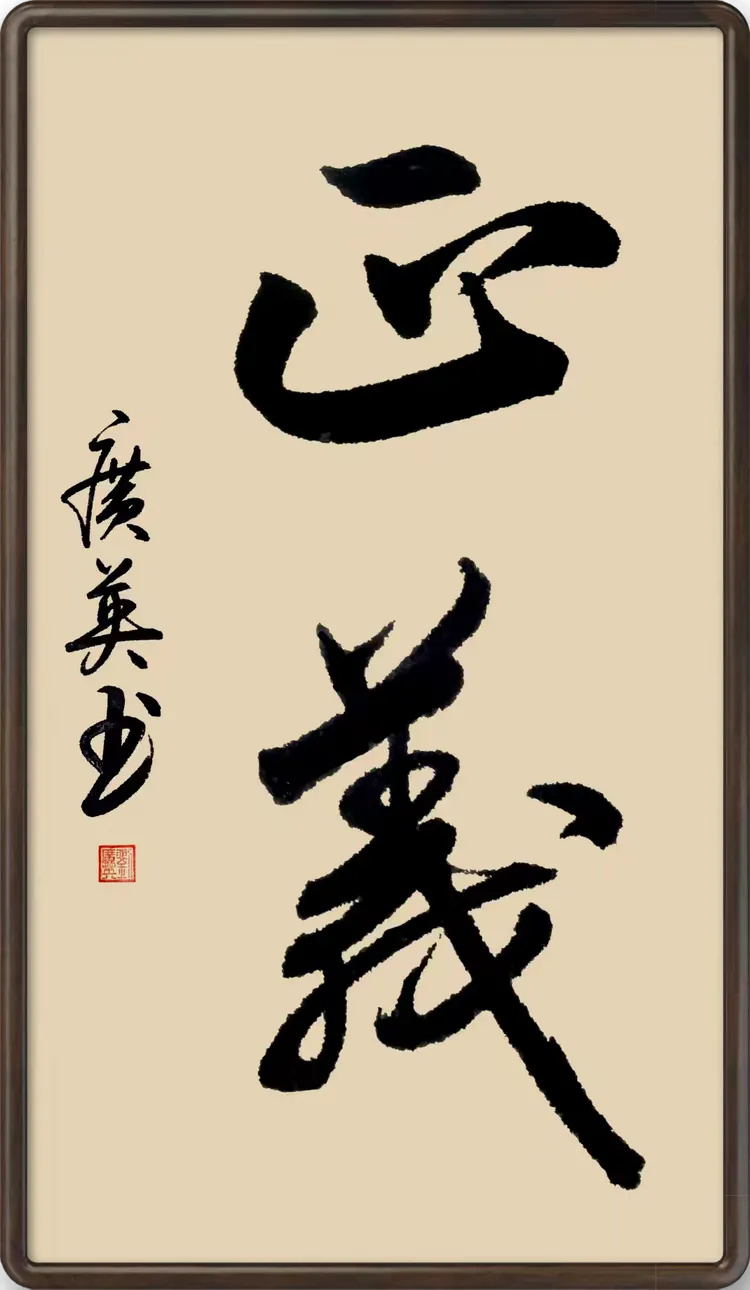 正義
廣英书